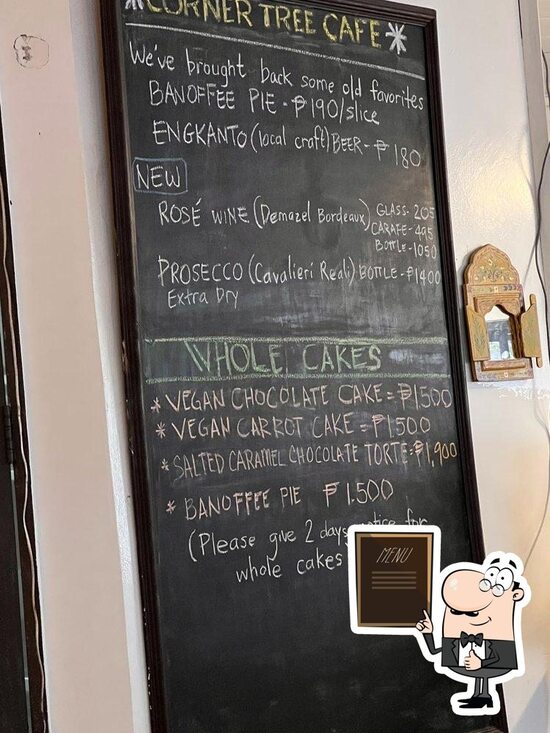 *CORNER TREE CAFE*
We've brought back some old favorites
BANOFFEE PIE - ₱190/slice
ENGKANTO (local craft) BEER - ₱ 180
NEW
ROSÉ WINE (Demazel Bordeaux) GLASS - 205
CARAFE - 495
BOTTLE - 1050
PROSECCO (Cavalieri Reali) BOTTLE - ₱1400
Extra Dry
WHOLE CAKES
* VEGAN CHOCOLATE CAKE = ₱1,500
* VEGAN CARROT CAKE = ₱1,500
* SALTED CARAMEL CHOCOLATE TORTE = ₱1,900
* BANOFFEE PIE ₱1,500
(Please give 2 days notice for
whole cakes
MENU